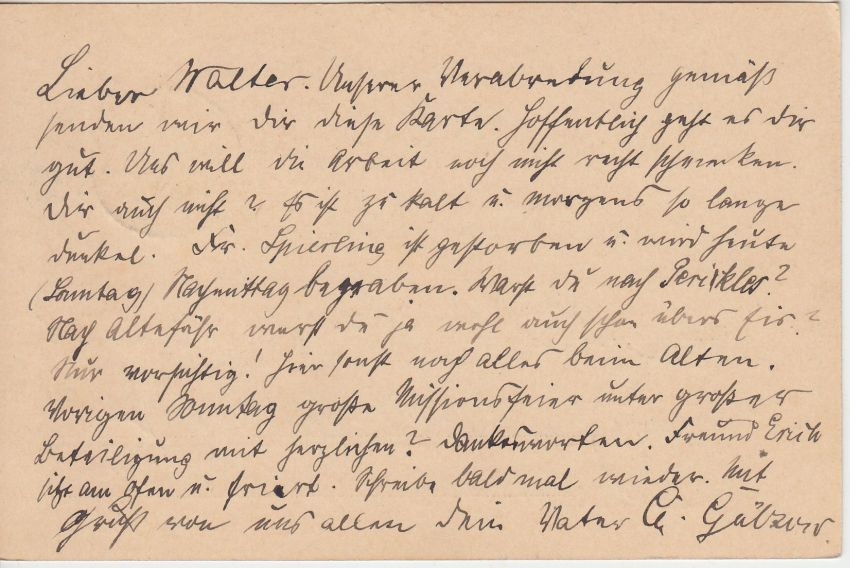 Lieber Walter. Unserer Verabredung gemäß
senden wir Dir diese Karte. Hoffentlich geht es Dir
gut. Uns will die Arbeit noch nicht recht schmecken.
Dir auch nicht? Es ist zu kalt u. morgens so lange
dunkel. Fr. Spierling ist gestorben u. wird heute
(Sonntag) Nachmittag begraben. Warst du nach Perikles?
Nach Altefähr warst du ja wohl auch schon übers Eis?
Nur vorsichtig! Hier sonst noch alles beim Alten.
Vorigen Sonntag große Missionsfeier unter großer
Beteiligung mit herzlichen? Dankesworten. Freund Erich
sitzt am Ofen u. friert. Schreibe bald mal wieder. Mit
Gruß von uns allen Dein Vater